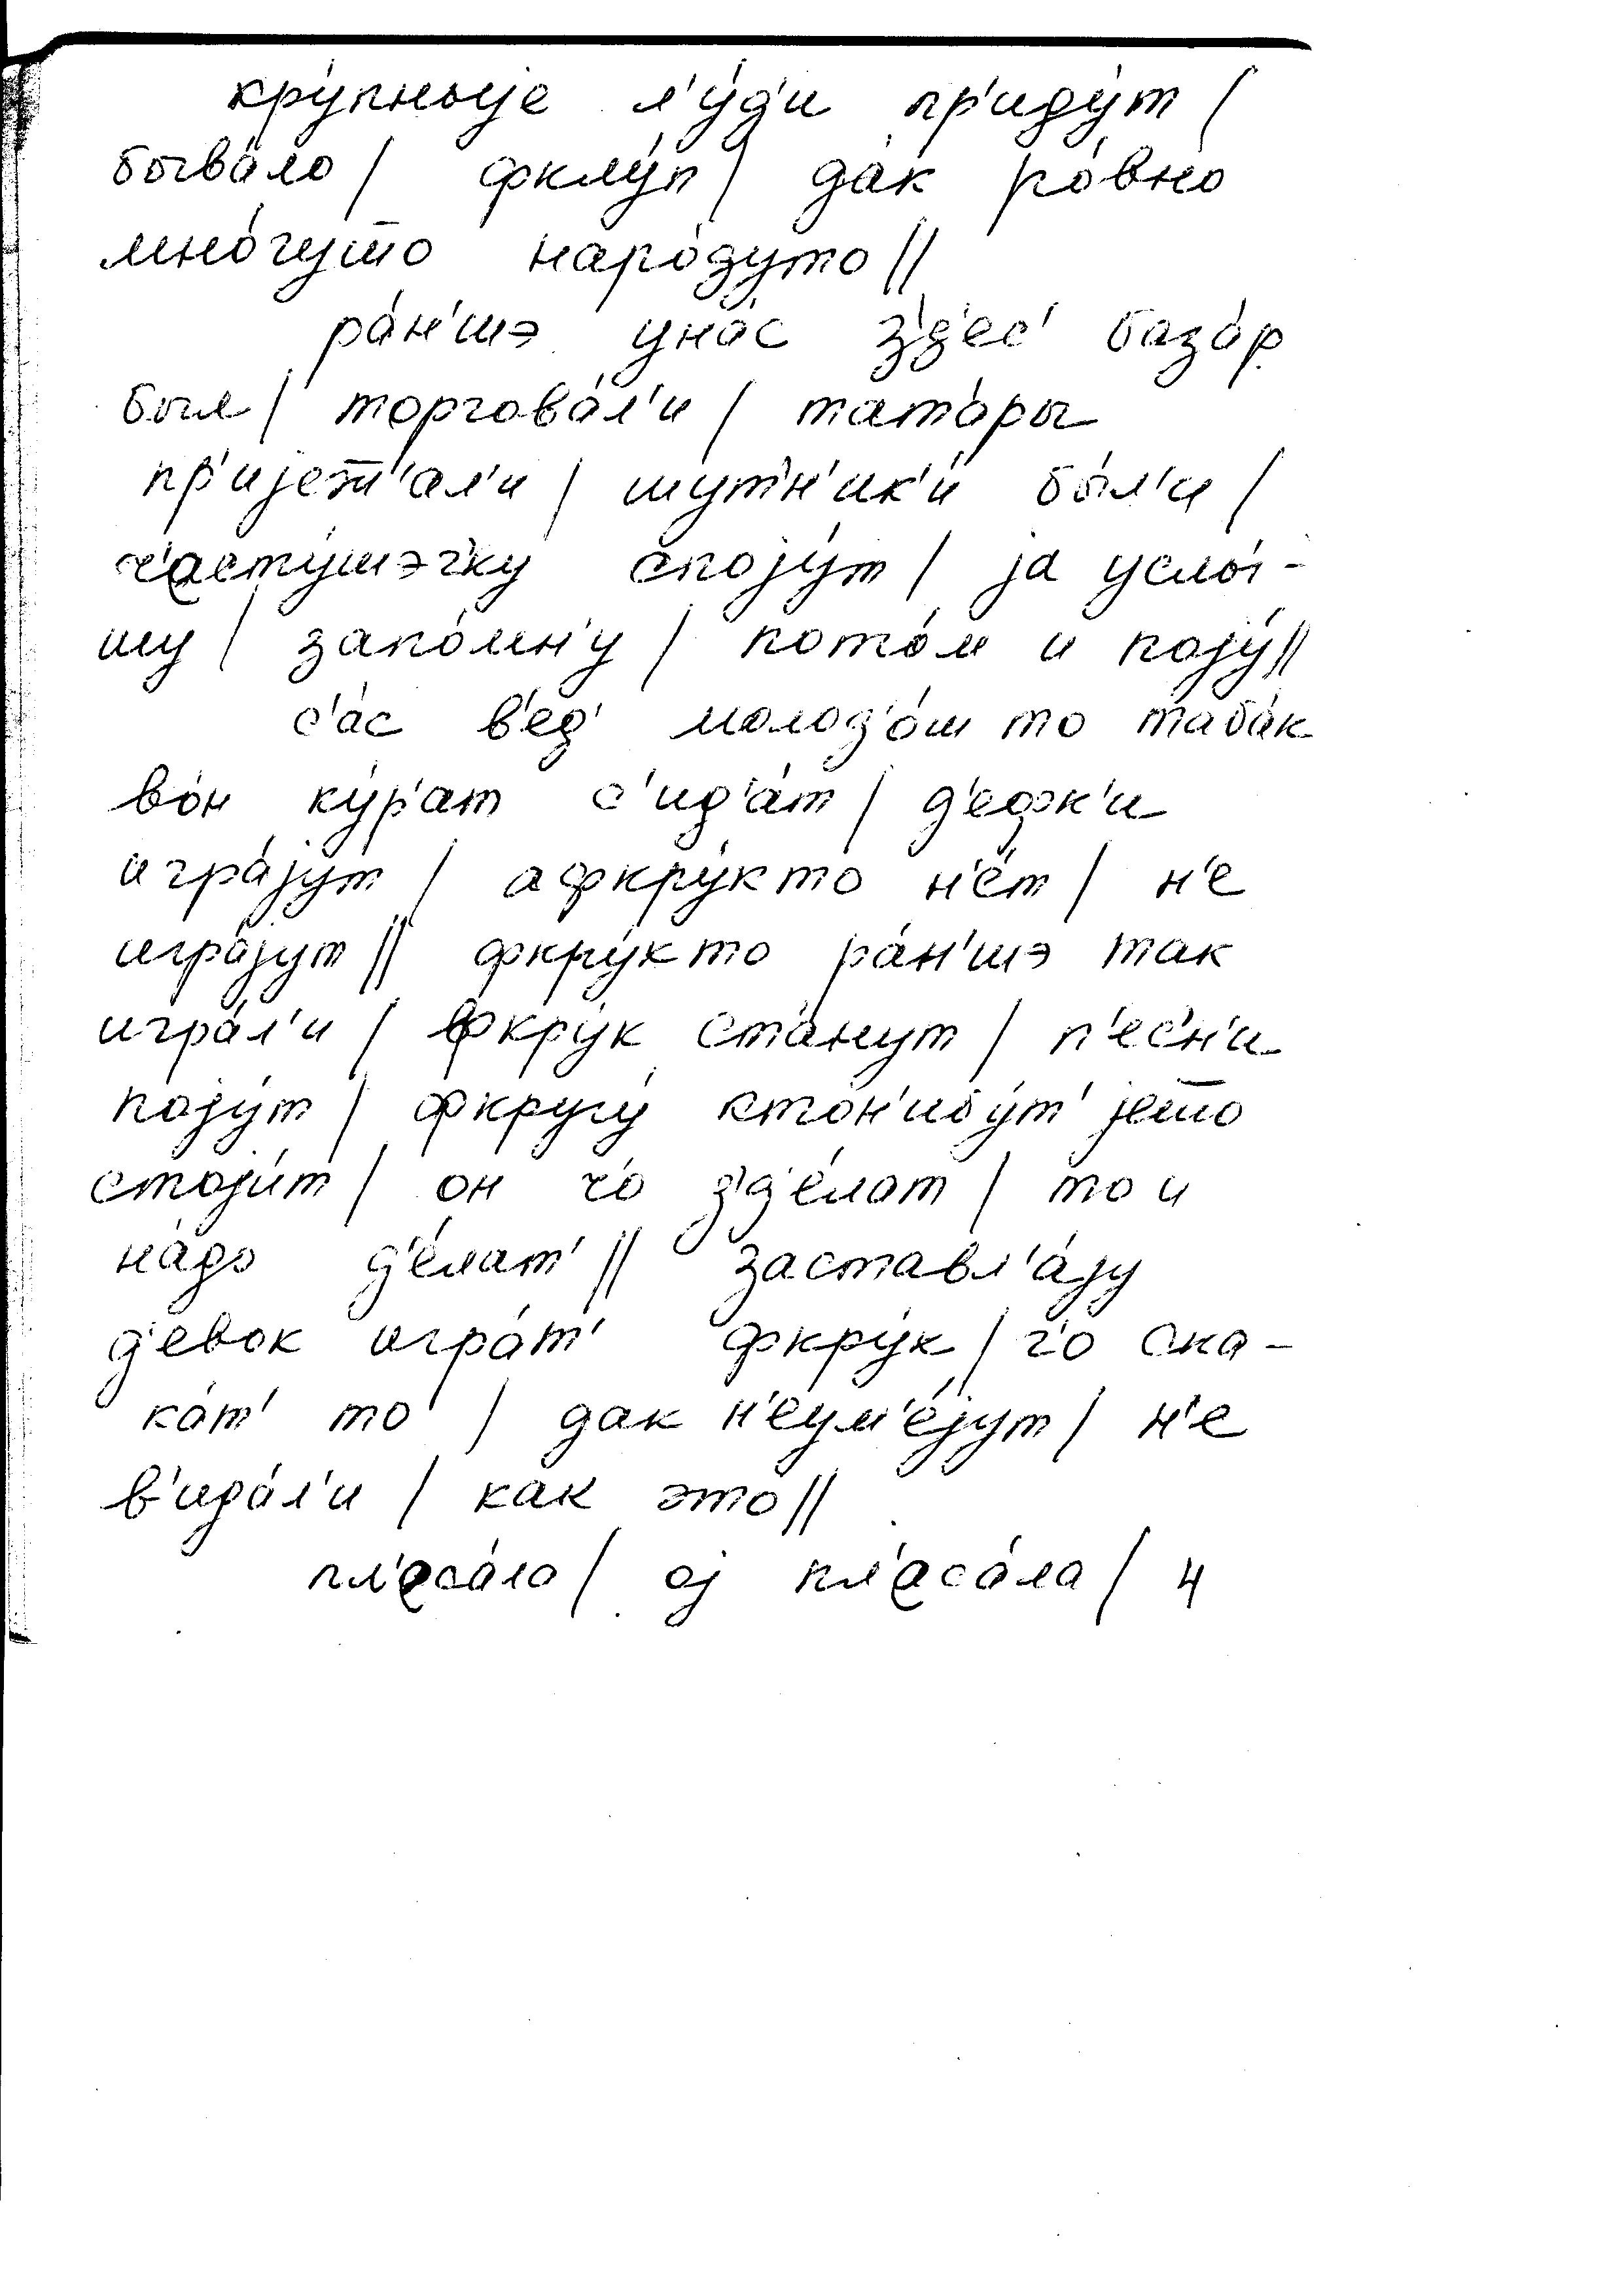 кру́пныjе л'у́д'и пр'иду́т /
быва́ло / фклу́п / да́к ро́вно
мно́гуто наро́дуто //
ра́н'шэ уна́с з'д'ес' база́р
был / торгова́л'и / тата́ры
пр'иjежн'ал'и / шутн'ик'и́ бы́л'и /
ч'асту́шэч'ку споjу́т / jа услы́-
шу / запо́мн'у / пото́м и поjу́ //
с'а́с в'ед' молод'о́ш то таба́к
во́н ку́р'ат с'ид'а́т / д'ефк'и
игра́jут / афкру́кто н'е́т / н'е
игра́jут // фкру́кто ра́н'шэ так
игра́л'и / фкру́к ста́нут / п'ес'н'и
поjу́т / фкругу́ кто́н'ибу́т' jето
стоjи́т / он ч'о́ з'д'е́лат / то и
на́до д'е́лат' // заставл'а́jу
д'евок игра́т' фкру́к / ч'о ска-
ка́т' то / дак н'еум'е́jут / н'е
в'ида́л'и / как это //
пл'аса́ла / оj пл'аса́ла / ч